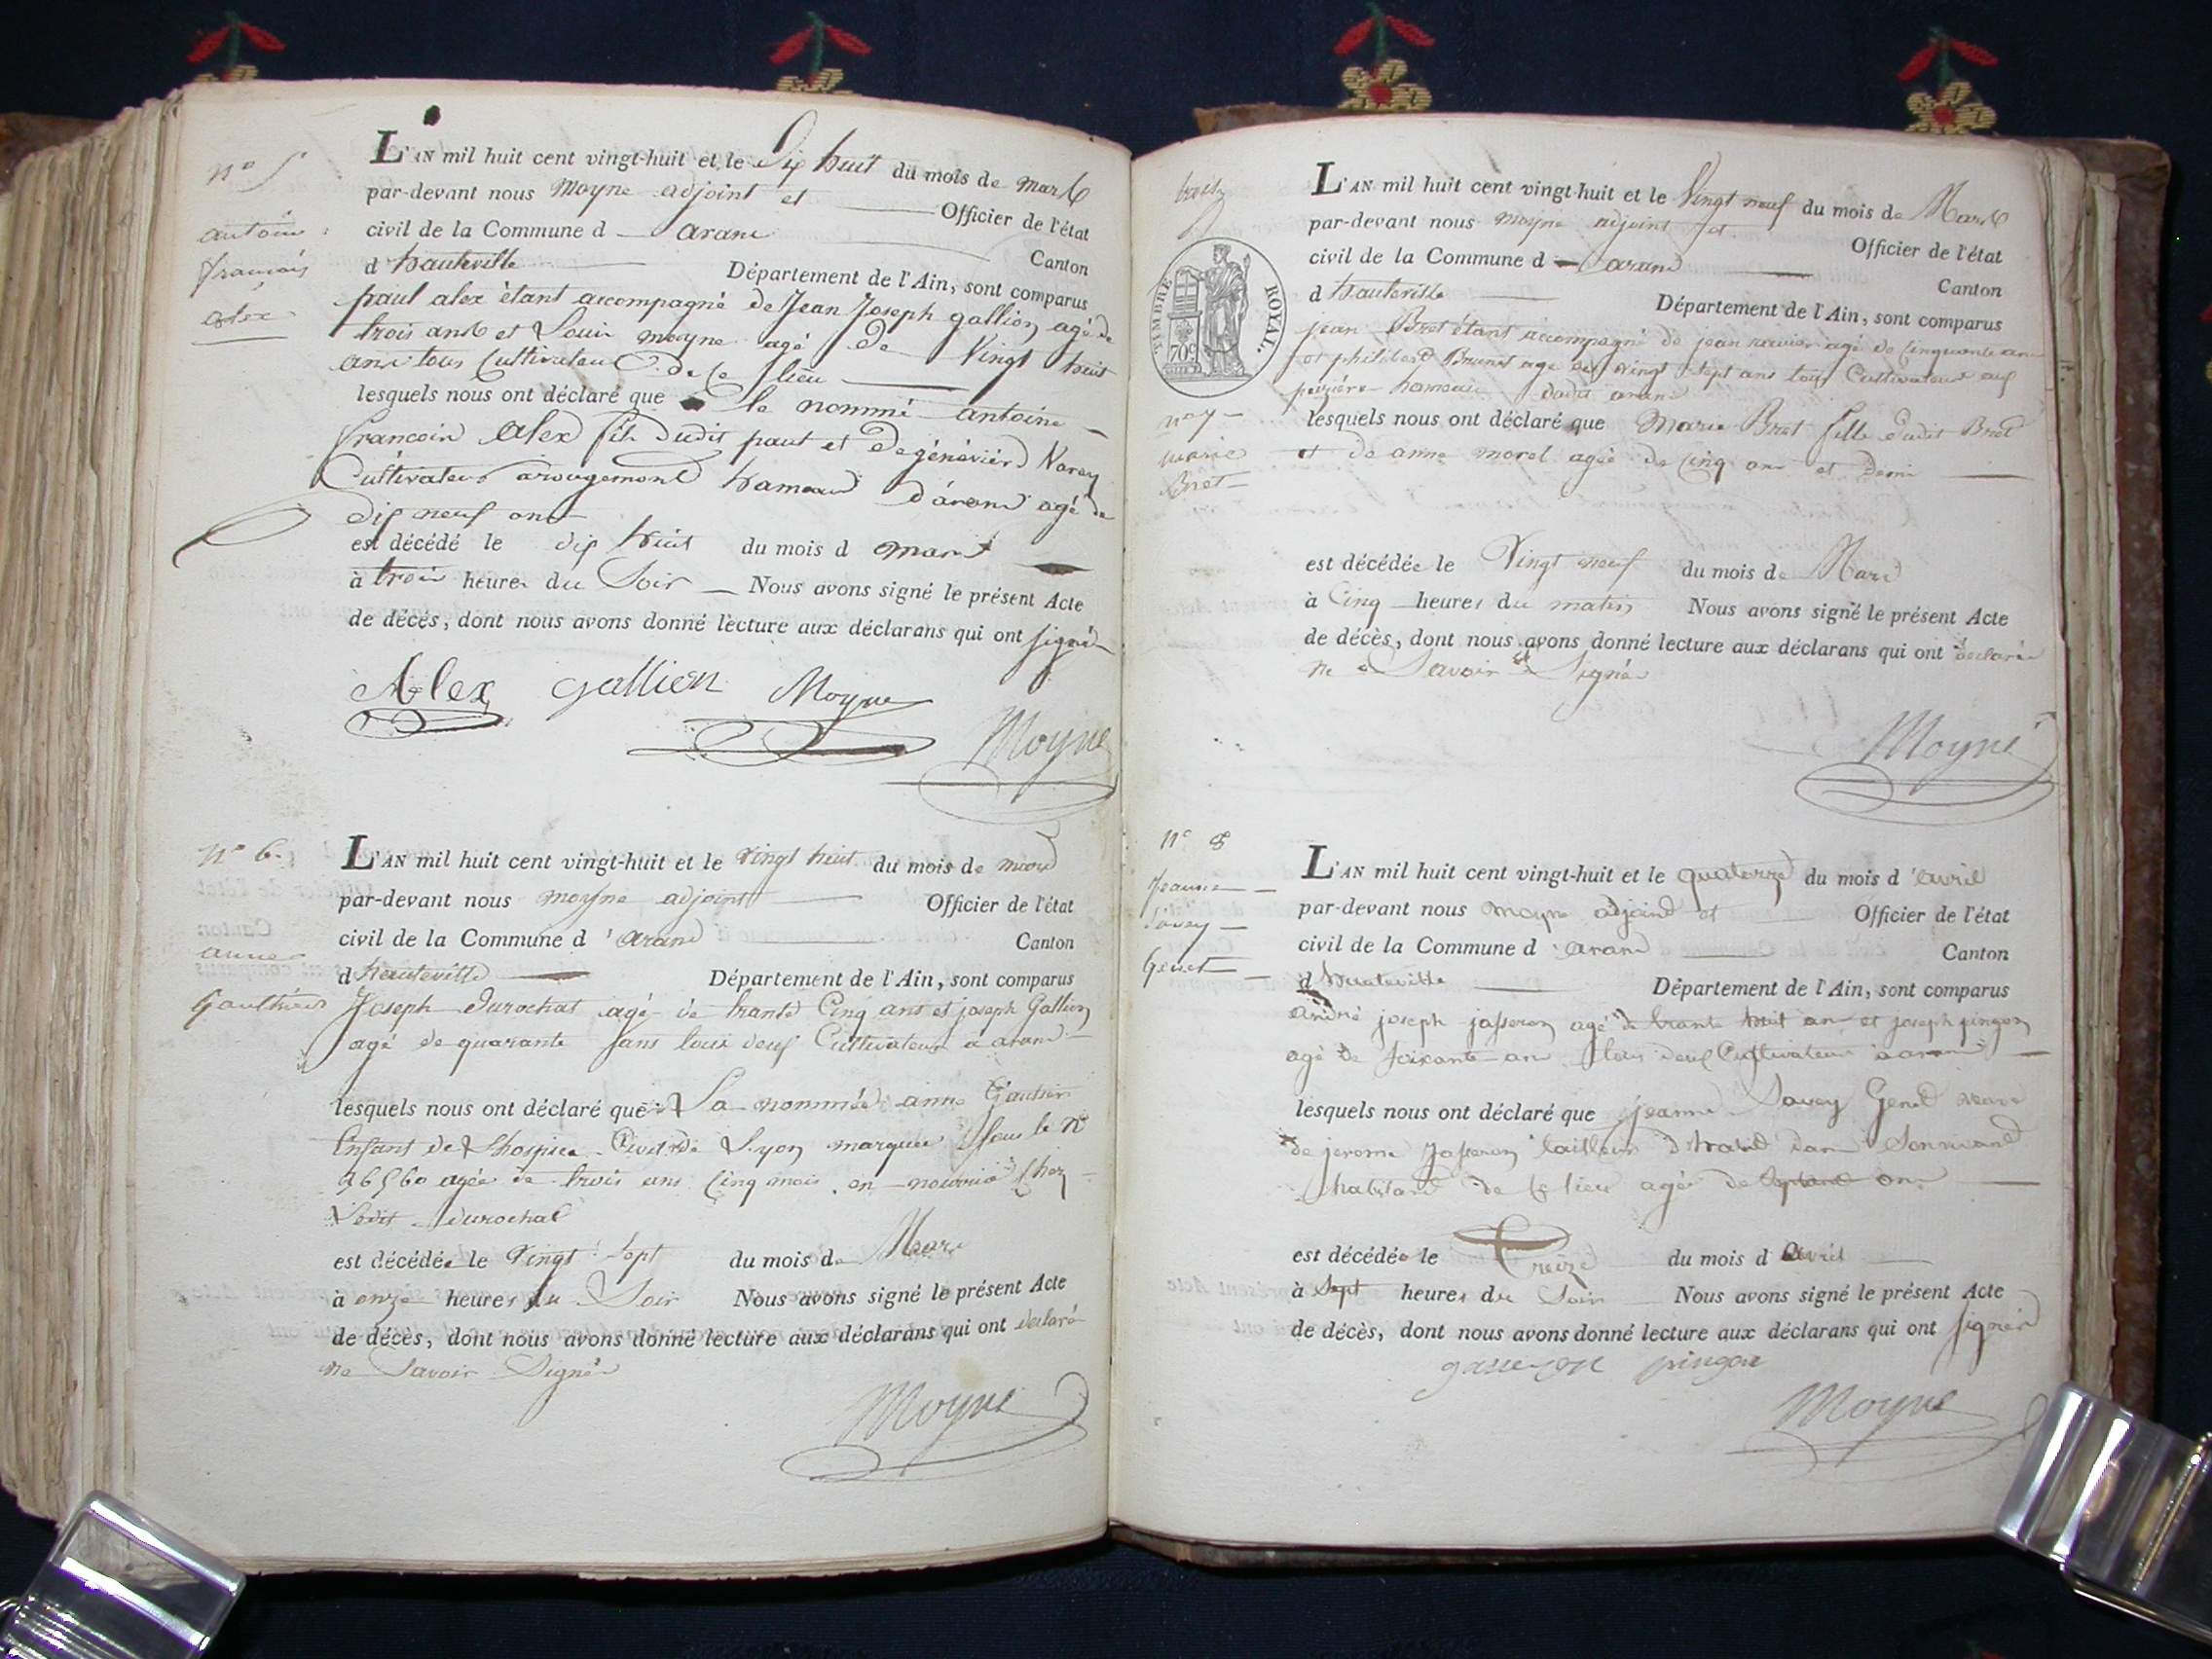 n° 5
antoine
françois
alex
L'AN mil huit cent vingt-huit et le Dix huit du mois de mars
par-devant nous moyne adjoint et Officier de l'état
civil de la Commune d aranc
Canton
d hauteville Département de l'Ain, sont comparus
paul alex étant accompagné de Jean Joseph gallion agé de
trois ans et Louis moyne agé de Vingt huit
ans tous Cultivateur de Ce lieu
lesquels nous ont déclaré que le nommé antoine
francois alex fils dudit paul et de
Cultivateur arougemont hameau d'aranc agé de
dix neuf ans
est décédé le dix huit du mois d mars
à trois heures du Soir Nous avons signé le présent Acte
de décès, dont nous avons donné lecture aux déclarans qui ont signé
Alex gallion Moyne
Moyne
N° 6.
anne
Gauthier
L'AN mil huit cent vingt-huit et le vingt huit du mois de mars
par-devant nous moyne adjoint Officier de l'état
civil de la Commune d'aranc Canton
d hauteville Département de l'Ain, sont comparus
Joseph Durochat agé de trante Cinq ans et joseph Gallion
agé de quarante ans tous deux Cultivateur a aranc
lesquels nous ont déclaré que La nommée anne Gautier
Enfant de Lhospice Civil de Lyon marquée sous le N°
36560 agée de trois ans Cinq mois en nourrice Chez
Ledit durochat
est décédée le Vingt Sept du mois de Mars
à onze heures du Soir Nous avons signé le présent Acte
de décès, dont nous avons donné lecture aux déclarans qui ont déclaré
ne Savoir Signé
Moyne
TIMBRE ROYAL.
70c
n° 7
marie
Bret
L'AN mil huit cent vingt-huit et le Vingt neuf du mois de Mars
par-devant nous moyne adjoint et Officier de l'état
civil de la Commune d aranc
Canton
d hauteville Département de l'Ain, sont comparus
jean Bret étant accompagné de jean agé de Cinquante an
et philibert Brunet agé de vingt Sept ans tous Cultivateur
hameau dudit aranc
lesquels nous ont déclaré que Marie Bret fille dudit Bret
et de anne morel agée de Cinq ans et demi
est décédée le Vingt neuf du mois de Mars
à Cinq heures du matin Nous avons signé le présent Acte
de décès, dont nous avons donné lecture aux déclarans qui ont déclaré
ne Savoir Signé
Moyne
N° 8
Jeanne
Savey
Genet
L'AN mil huit cent vingt-huit et le quatorze du mois d'avril
par-devant nous moyne adjoint et Officier de l'état
civil de la Commune d aranc Canton
d hauteville Département de l'Ain, sont comparus
andré joseph jasseron agé de trante huit an et joseph pingon
agé de soixante an tous deux Cultivateur a aranc
lesquels nous ont déclaré que jeanne Savey Genet veuve
de jerome jasseron tailleur d'habit dans Sonvivant
habitant de Ce lieu agée de ans
est décédée le Treize du mois d avril
à Sept heures du Soir Nous avons signé le présent Acte
de décès, dont nous avons donné lecture aux déclarans qui ont signé
jasseron pingon
Moyne